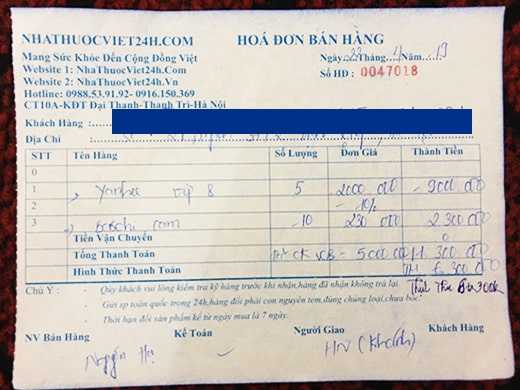 NHATHUOCVIET24H.COM HOÁ ĐƠN BÁN HÀNG
Mang Sức Khỏe Đến Cộng Đồng Việt Ngày 22 Tháng 4 19
Website 1: NhaThuocViet24h.Com Số HĐ : 0047018
Website 2: NhaThuocViet24h.Vn
Hotline: 0988.53.91.92- 0916.150.369
CT10A-KĐT Đại Thanh-Thanh Trì-Hà Nội
Khách Hàng :
Địa Chỉ
STT Tên Hàng Số Lượng Đơn Giá Thành Tiền
0
1 5 2000 000 9000 000
2 - 10%
3 10 230 000 2 300 000
Tiền Vận Chuyển 0
Tổng Thanh Toán CK VCB - 5000 000 11 300 000
Hình Thức Thanh Toán 6 300 000
Chú Ý : - Qúy khách vui lòng kiểm tra kỹ hàng trước khi nhận, hàng đã nhận không trả lại.
- Gửi sp toàn quốc trong 24h, hàng đổi phải còn nguyên tem, đúng chủng loại, chưa bóc.
- Thời hạn đổi sản phẩm kể từ ngày mua là 7 ngày.
NV Bán Hàng Kế Toán Người Giao Khách Hàng
HN (Khách)